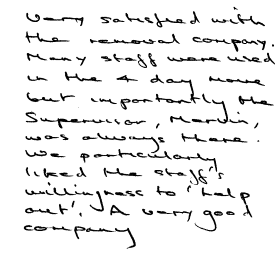 Very satisfied with
the removal company.
Many staff were used
in the 4 day move
but importantly the
Supervisor, Mervin,
was always there.
We particularly
liked the staff's
willingness to 'help
out'. A very good
company